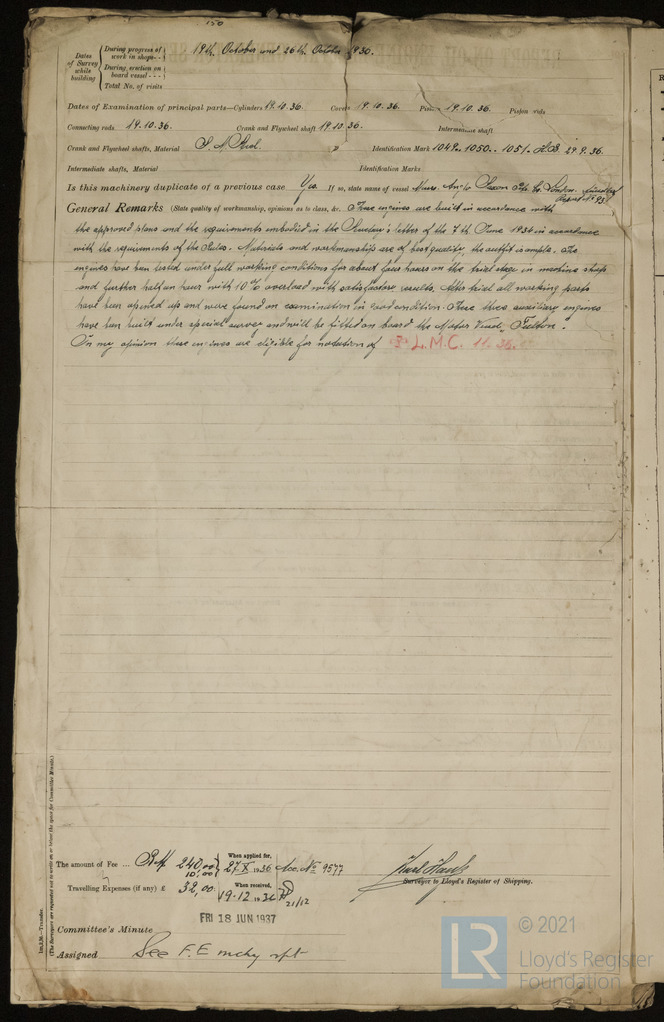 150
Dates of Survey while building
During progress of work in shops -- 19th. October and 26th. October 1936.
During erection on board vessel ---
Total No. of visits
Dates of Examination of principal parts—Cylinders 19.10.36. Covers 19.10.36. Pistons 19.10.36. Piston rods
Connecting rods 19.10.36. Crank and Flywheel shaft 19.10.36. Intermediate shaft
Crank and Flywheel shafts, Material S. M. Steel Identification Mark 1049.. 1050.. 1051. 29.9.36.
Intermediate shafts, Material Identification Marks
Is this machinery duplicate of a previous case Yes. If so, state name of vessel Messrs. Anglo Saxon Pet. Co London.
General Remarks (State quality of workmanship, opinions as to class, &c. These engines are built in accordance with
the approved plans and the requirements embodied in the Secretary's letter of the 7th June 1934 in accordance
with the requirements of the Rules. Materials and workmanship are of best quality, the outfit is ample. The
engines have been tested under full working conditions for about four hours on the trial stage in machine shops
and further half an hour with 10% overload with satisfactory results. After trial all working parts
have been opened up and were found on examination in good condition. These three auxiliary engines
have been built under special survey and will be fitted on board the Motor Vessel
In my opinion these engines are eligible for notation of L.M.C. 11.36.
The amount of Fee ... 240,00 When applied for, 27.X.1936 Acc. No 9577
10,00
Travelling Expenses (if any) £ 32,00 When received, 19.12.1936 21/12
Surveyor to Lloyd's Register of Shipping.
FRI 18 JUN 1937
Committee's Minute
Assigned See F.E. mchy rpt
(The Surveyors are requested not to write on or below the space for Committee Minute.)
© 2021
LR
Lloyd's Register
Foundation